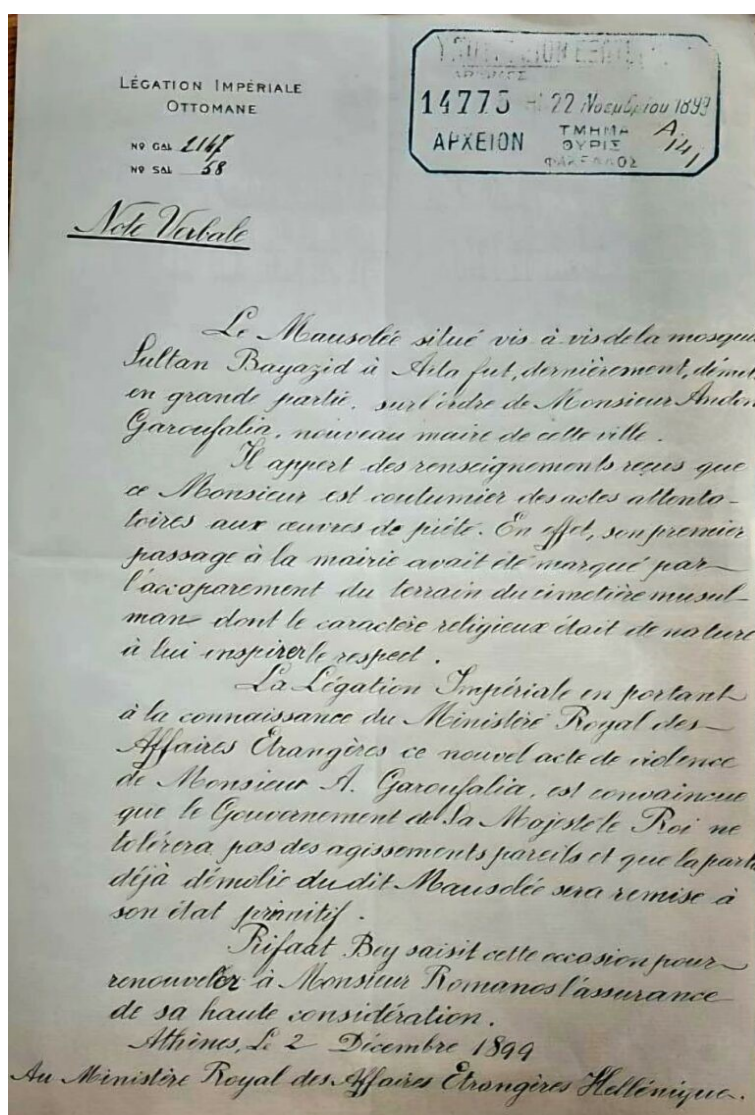 LÉGATION IMPÉRIALE
OTTOMANE
Nº GAL 2167
Nº SAL 58
14775 22 Νοεμβρίου 1899
ΑΡΧΕΙΟΝ
ΤΜΗΜΑ
ΘΥΡΙΣ
ΦΑΚΕΛΛΟΣ
A
141
Note Verbale
Le Mausolée situé vis à vis de la mosqu
Sultan Bayazid à Arta fut, dernièrement, démol
en grande partie, sur l'ordre de Monsieur Andon
Garoufalia, nouveau maire de cette ville.
Il appert des renseignements reçus que
ce Monsieur est coutumier des actes attenta-
toires aux œuvres de piété. En effet, son premier
passage à la mairie avait été marqué par
l'accaparement du terrain du cimetière musul-
man dont le caractère religieux était de nature
à lui inspirer le respect.
La Légation Impériale en portant
à la connaissance du Ministère Royal des
Affaires Etrangères ce nouvel acte de violence
de Monsieur A. Garoufalia, est convaincue
que le Gouvernement de Sa Majesté le Roi ne
tolérera pas des agissements pareils et que la parti
déjà démolie du dit Mausolée sera remise à
son état primitif.
Rifaat Bey saisit cette occasion pour
renouveler à Monsieur Romanos l'assurance
de sa haute considération.
Athènes, Le 2 Décembre 1899
Au Ministère Royal des Affaires Etrangères Hellénique.